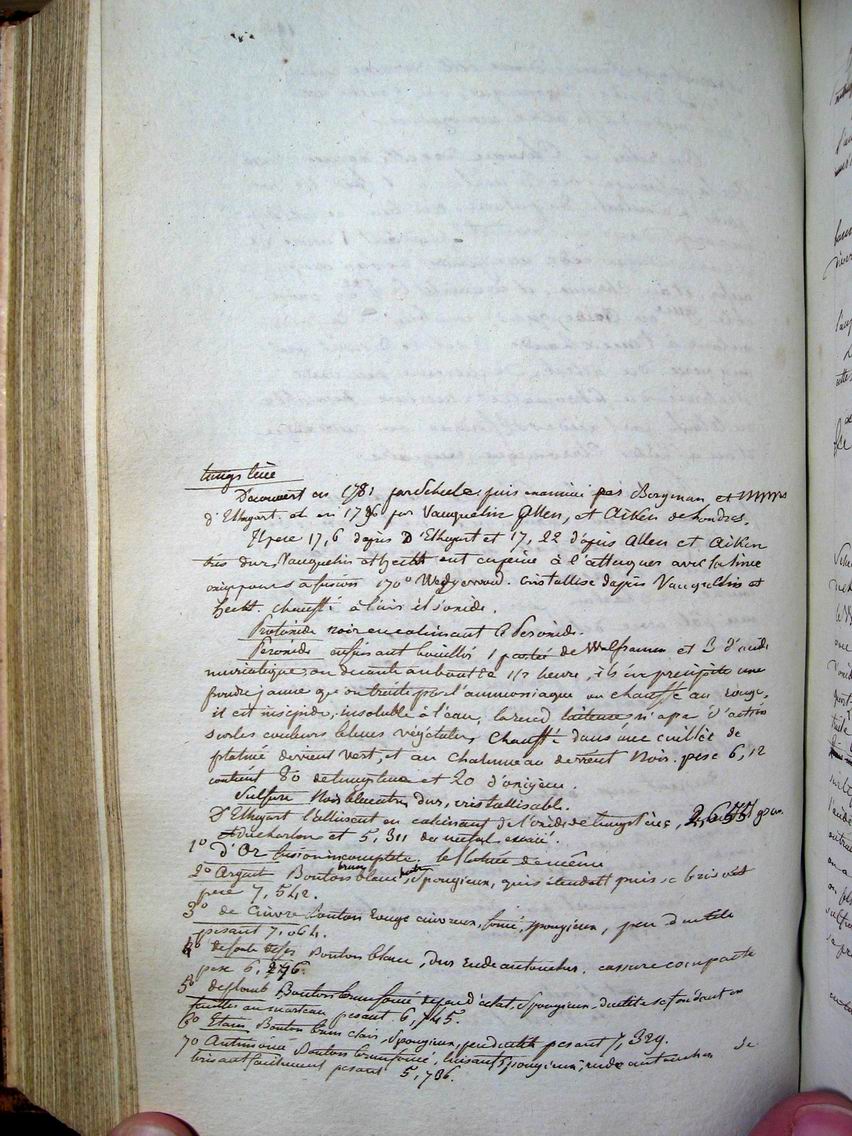 tungstène
Découvert en 1781 par Scheele, puis examiné par Bergman et MMrs
d'Elhuyart. et en 1796 par Vauquelin Allen, et Aiken de Londres.
Il pese 17,6 d'apris D'Elhuyart et 17,22 d'apris Allen et Aiken
tres dur, Vauquelin et Hecht ont eu peine à l'attaquer avec la lime
exige pour sa fusion 170° Wedgewood. cristallise d'apris Vauquelin et
Hecht. chauffé à l'air il s'oxide.
Protoxide noir en calcinant le Peroxide.
Peroxide en faisant bouillir 1 partie de Wolfram et 3 d'acide
muriatique, on decante au bout de 1/2 heure, il s'en précipite une
poudre jaune qu'on traite par l'ammoniaque on chauffé au rouge,
il est insipide, insoluble à l'eau, la rend laiteuse n'a pas d'action
sur les couleurs bleues végétales, chauffé dans une cuillère de
platine devient vert, et au chalumeau devient noir. pese 6,12
contient 80 de tungstène et 20 d'oxigène.
Sulfure Noir bleuatre, dur, cristallisable.
D'Elhuyart l'allierent en calcinant de l'oxide de tungstène,
de charbon et 5,311 du métal essaié.
1° d'Or fusion incomplete. le platine de même
2° Argent Bouton blanc brun, spongieux, qui s'étendait puis se brisait
pese 7,542.
3° de Cuivre Bouton rouge cuivreux, foncé, spongieux, peu ductile
pesant 7,064.
4° de fonte de fer Bouton blanc, dur, rude au toucher. cassure compacte
pese 6,276.
5° de plomb Bouton brun foncé peu d'éclat, spongieux, ductile se fendant en
feuilles au marteau pesant 6,745.
6° Etain, Bouton brun clair, spongieux, peu ductile pesant 7,329.
7° Antimoine Bouton brun foncé, luisant, spongieux, rude au toucher se
brisant facilement pesant 5,786.